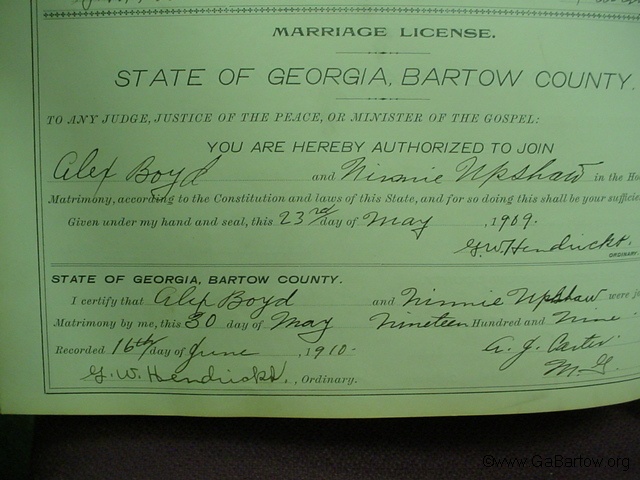 MARRIAGE LICENSE.
STATE OF GEORGIA, BARTOW COUNTY.
TO ANY JUDGE, JUSTICE OF THE PEACE, OR MINISTER OF THE GOSPEL:
YOU ARE HEREBY AUTHORIZED TO JOIN
Alex Boyd and Ninnie Upshaw in the Ho
Matrimony, according to the Constitution and laws of this State, and for so doing this shall be your sufficie
Given under my hand and seal, this 23rd day of May, 1909.
G.W. Hendricks,
ORDINARY.
STATE OF GEORGIA, BARTOW COUNTY.
I certify that Alex Boyd and Ninnie Upshaw were jo
Matrimony by me, this 30 day of May Nineteen Hundred and Nine
Recorded 16th day of June, 1910. A. J. Carter
G. W. Hendricks, Ordinary. M.G.
©www.GaBartow.org